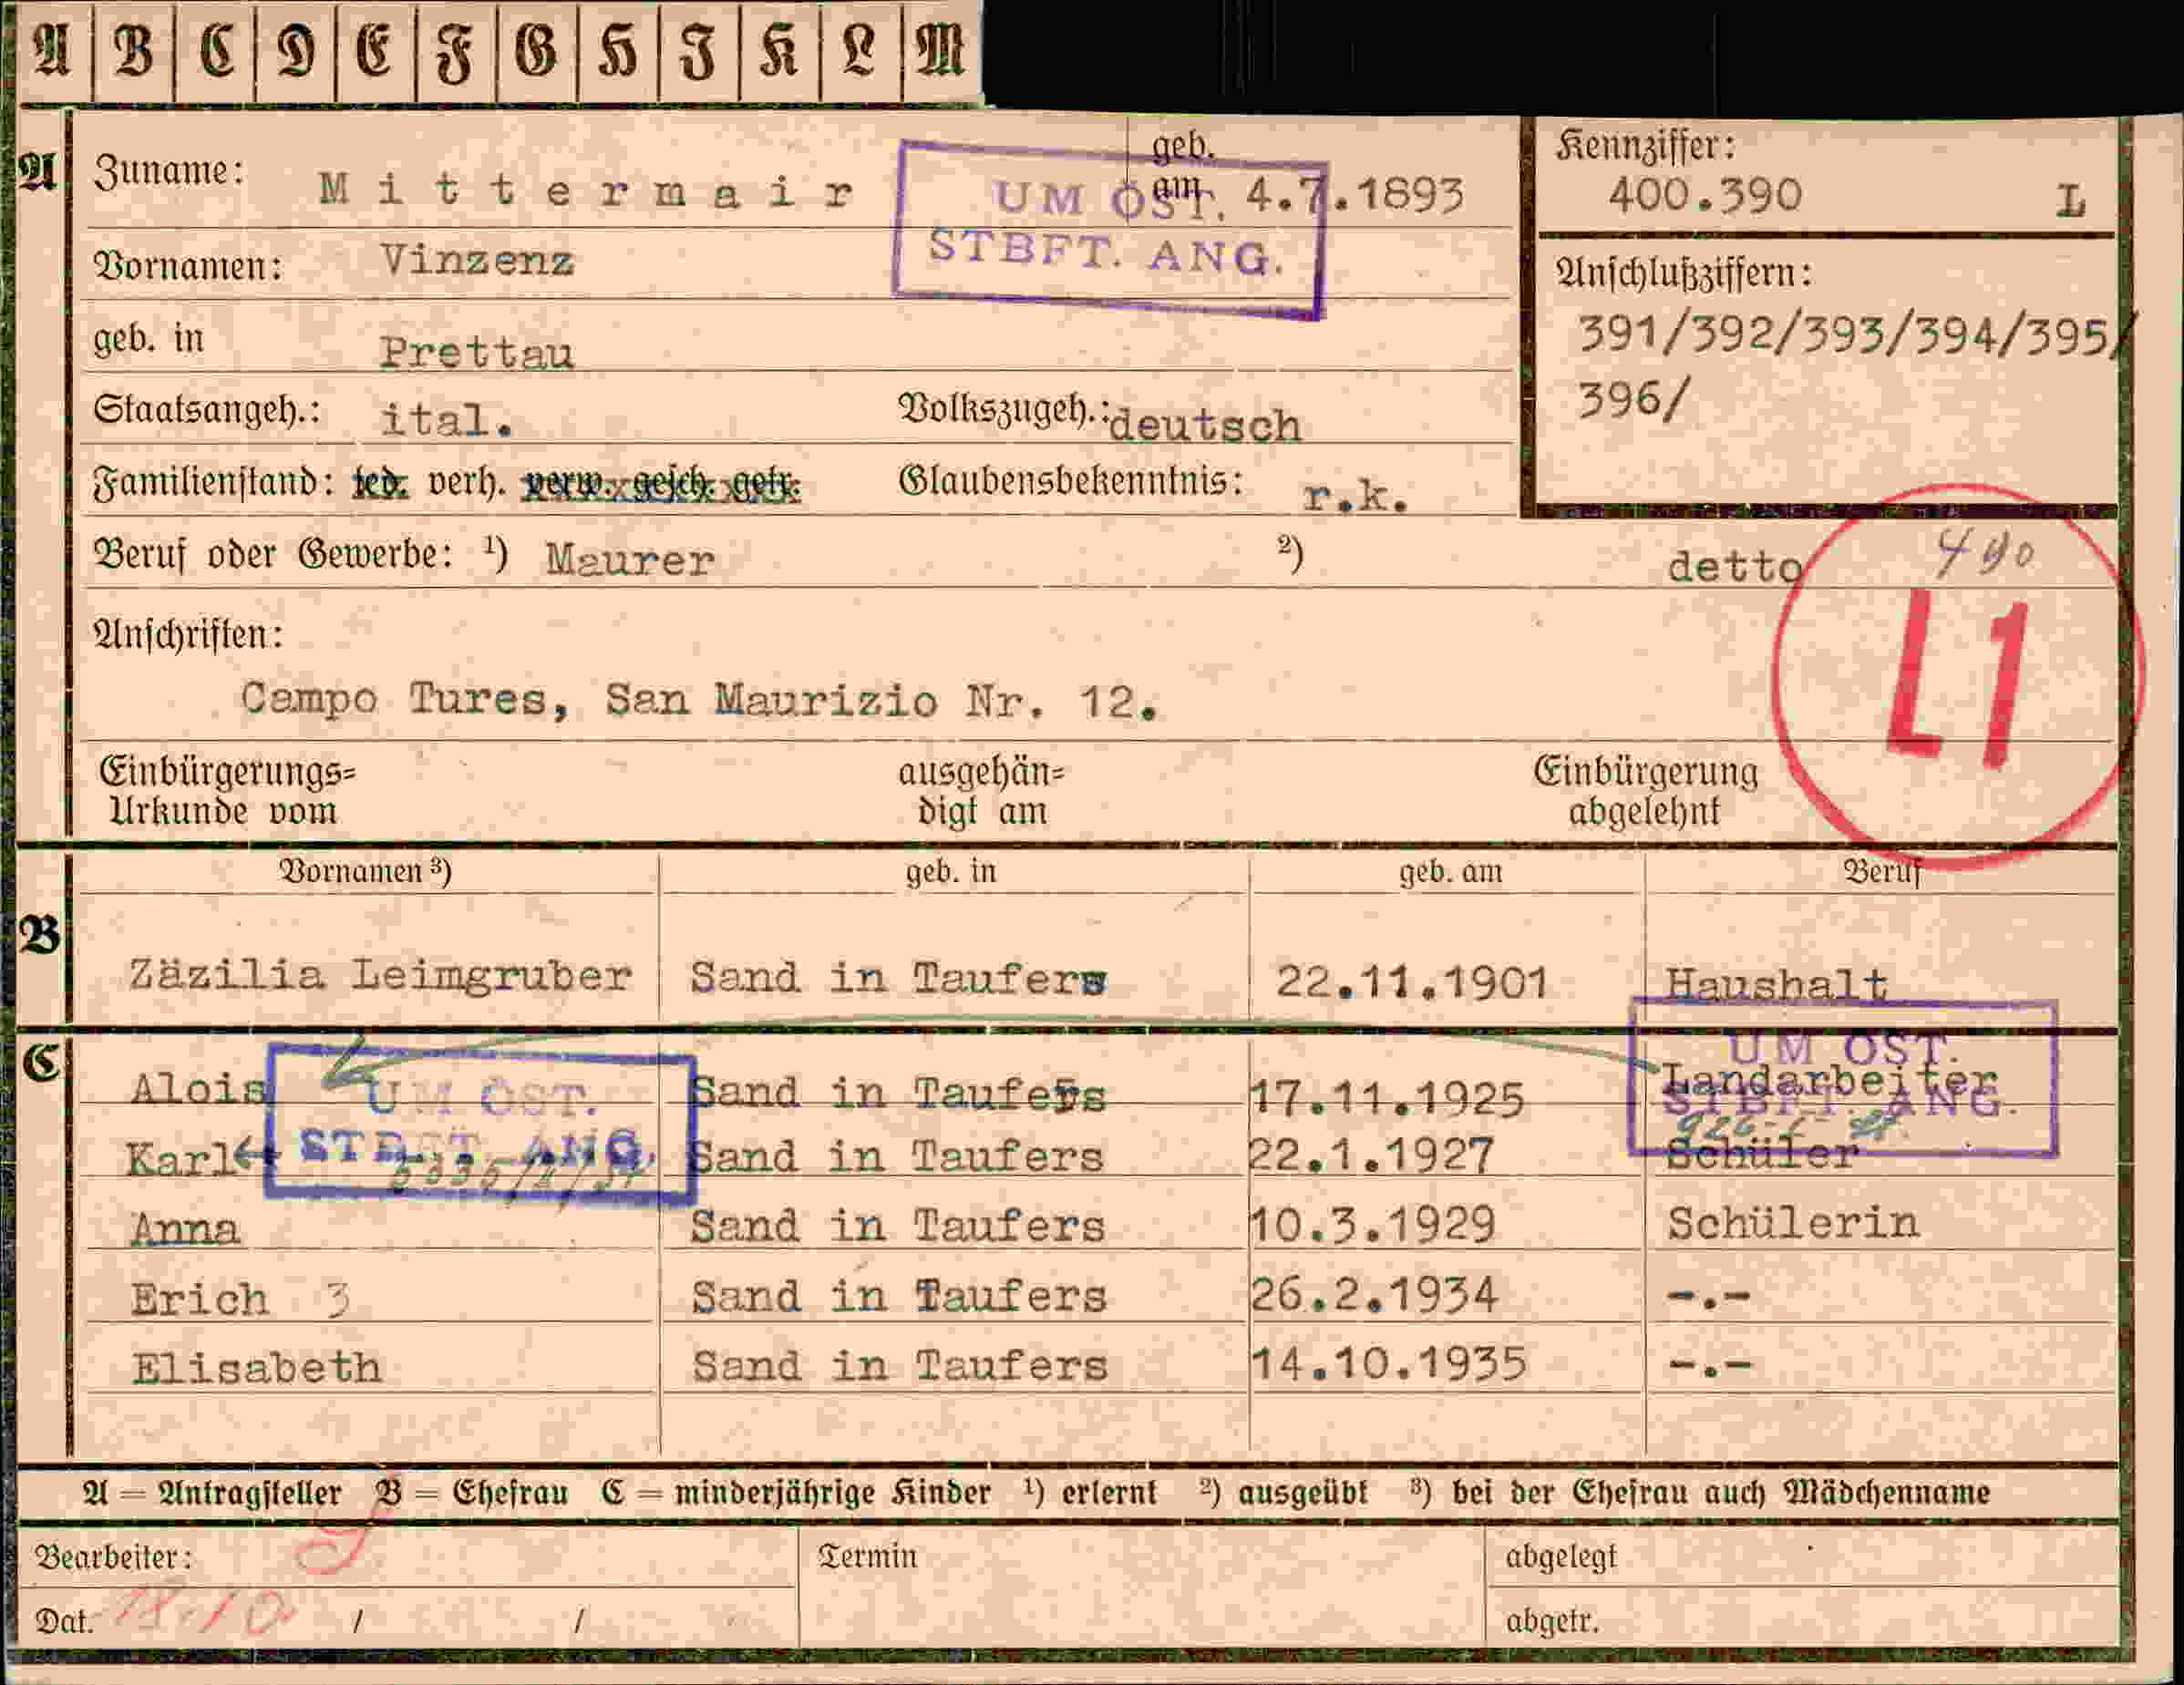 A B C D E F G H I K L M
A
Zuname: Mittermair
geb. am 4.7.1893
UM ÖST.
STBFT. ANG.
Kennziffer:
400.390 L
Vornamen: Vinzenz
Anschlußziffern:
391/392/393/394/395/
396/
geb. in Prettau
Staatsangeh.: ital. Volkszugeh.: deutsch
Familienstand: led. verh. verw. gesch. getr. Glaubensbekenntnis: r.k.
Beruf oder Gewerbe: 1) Maurer 2) detto
L1
Anschriften:
Campo Tures, San Maurizio Nr. 12.
Einbürgerungs=
Urkunde vom
ausgehän=
digt am
Einbürgerung
abgelehnt
Vornamen 3) geb. in geb. am Beruf
B
Zäzilia Leimgruber Sand in Taufers 22.11.1901 Haushalt
C
UM ÖST.
STBFT. ANG.
UM ÖST.
STBFT. ANG.
Alois Sand in Taufers 17.11.1925 Landarbeiter
Karl Sand in Taufers 22.1.1927 Schüler
Anna Sand in Taufers 10.3.1929 Schülerin
Erich 3 Sand in Taufers 26.2.1934 -.-
Elisabeth Sand in Taufers 14.10.1935 -.-
A = Antragsteller B = Ehefrau C = minderjährige Kinder 1) erlernt 2) ausgeübt 3) bei der Ehefrau auch Mädchenname
Bearbeiter: Termin abgelegt
Dat. / / abgetr.